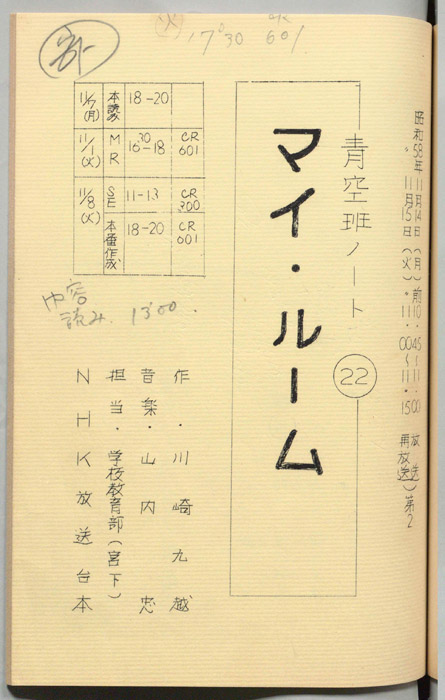 昭和58年11月14日(月)前10・45〜11・00放送
〃 11月15日(火)〃11・00〜11・15再放送)第2
青空班ノート
22
マイ・ルーム
(火)
17°30 601
11/7(月) 本読み 18-20
11/1(火) MR 16 30-18 CR601
11/8(火) SE 11-13 CR300
本番作成 18-20 CR601
内容
読み 13°00
作・川崎九越
音楽・山内忠
担当・学校教育部(宮下)
NHK放送台本